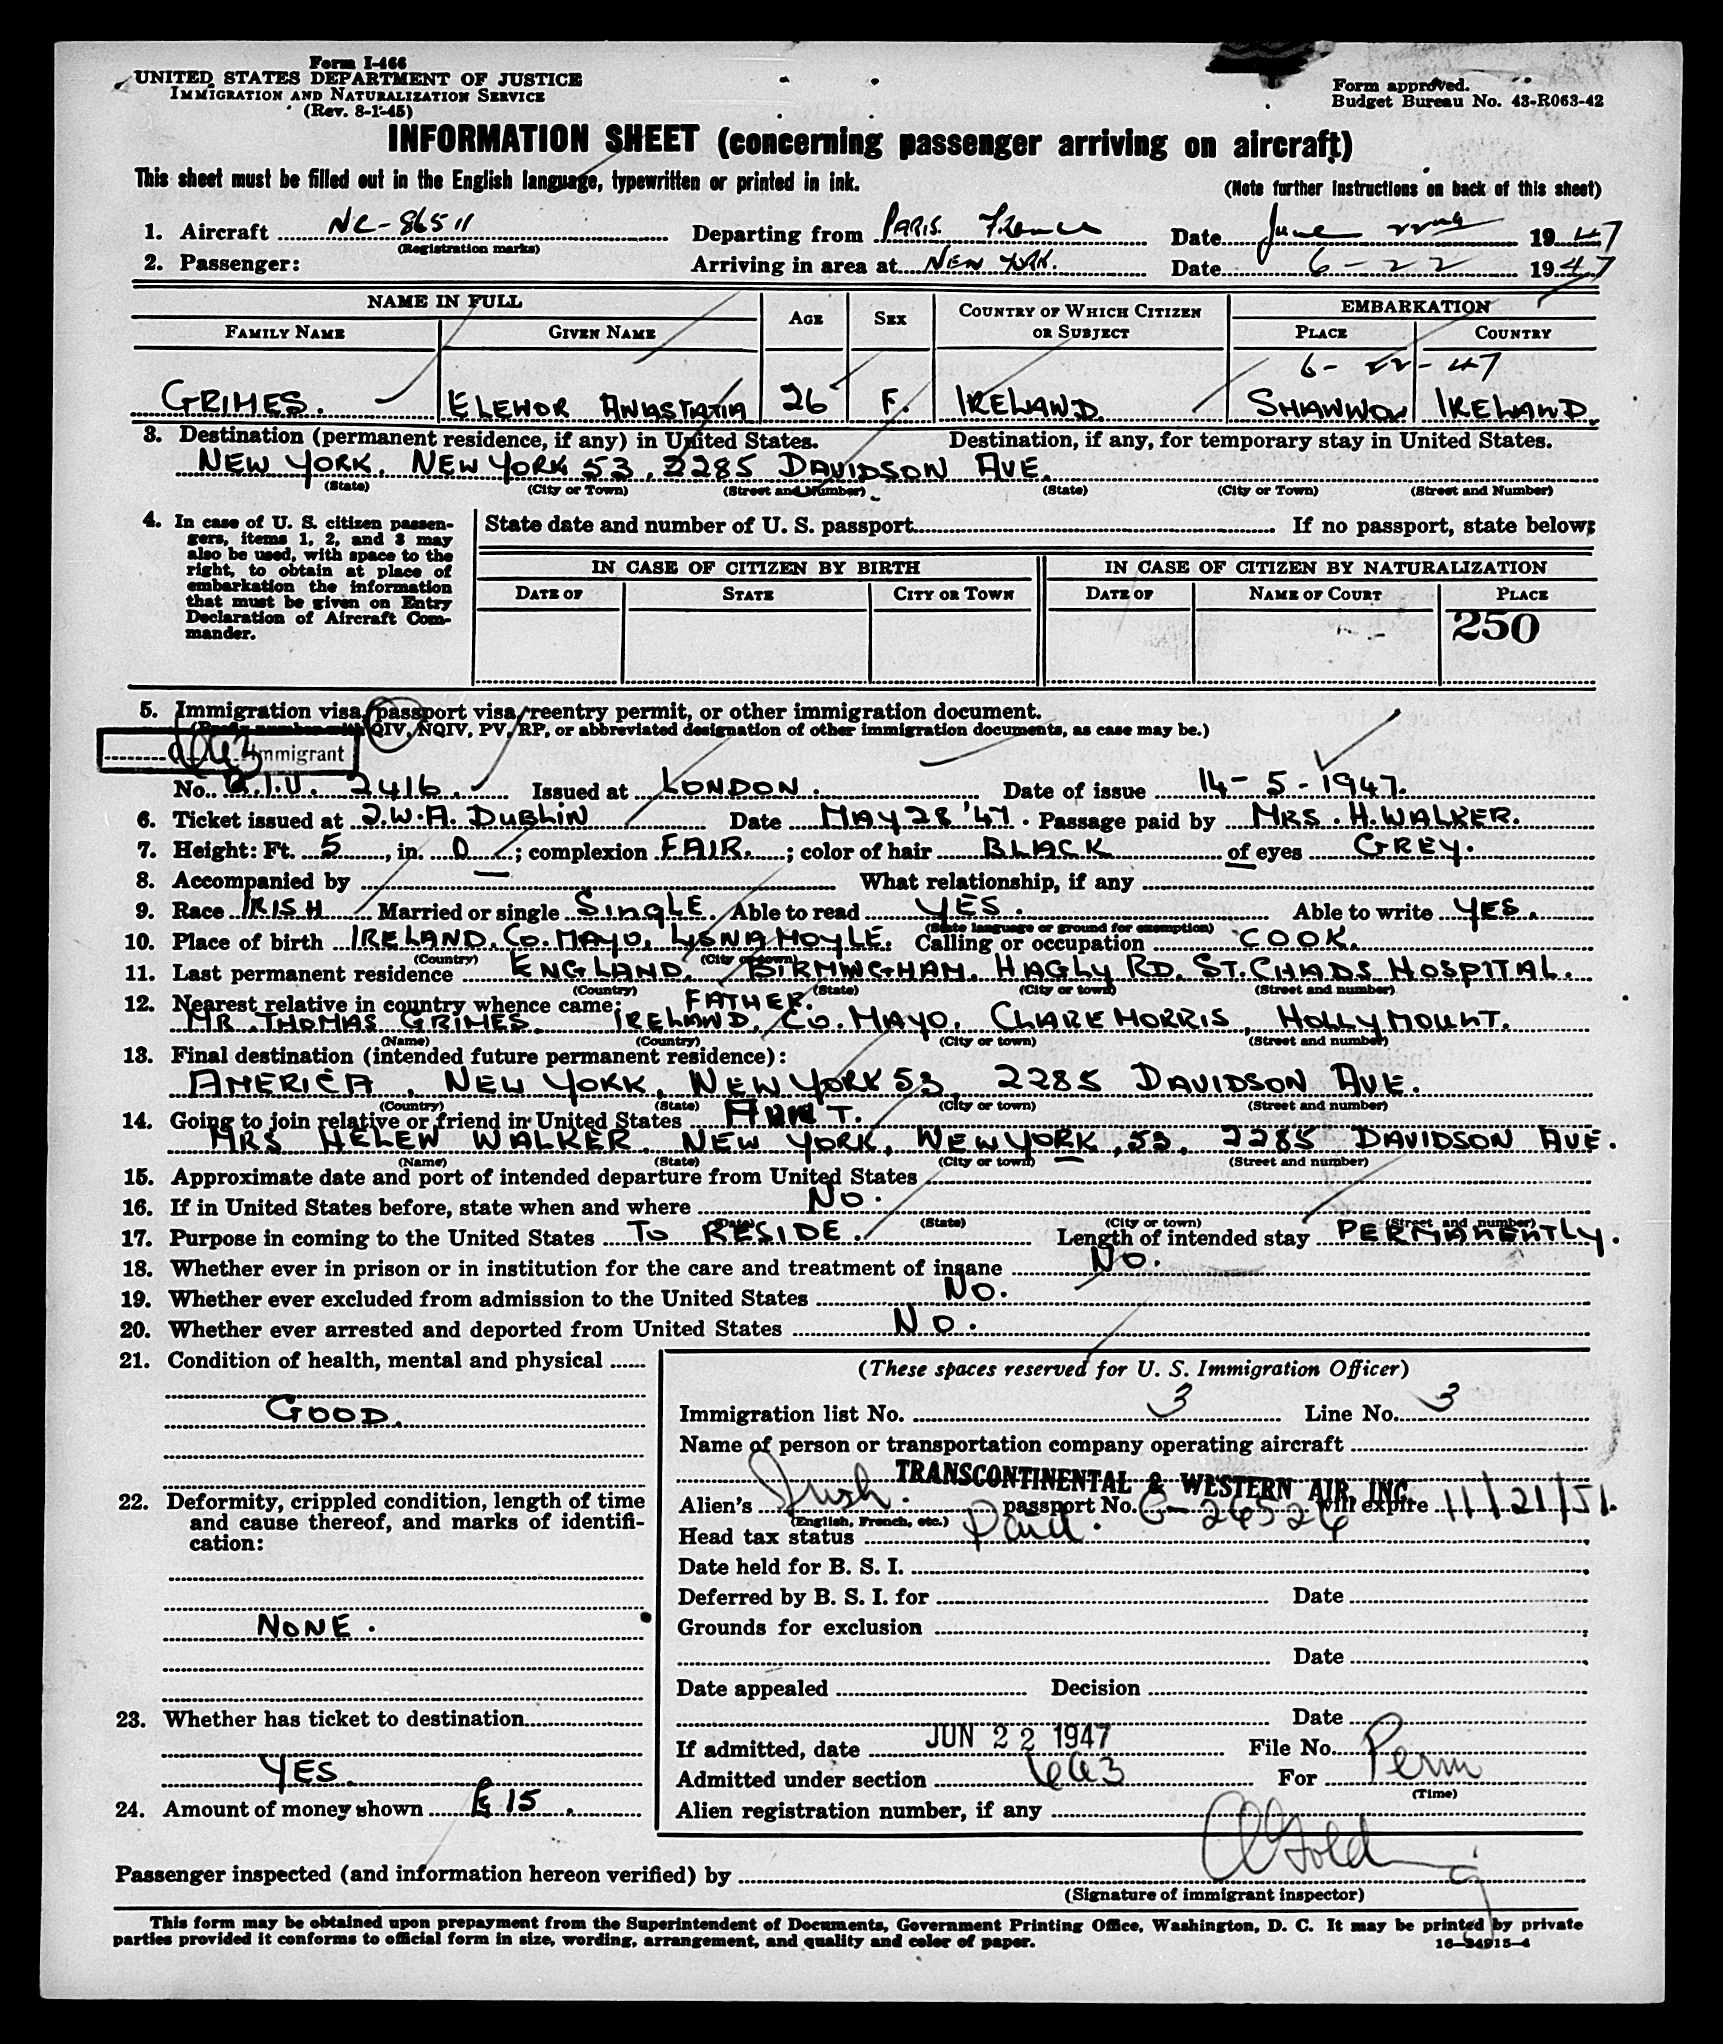 Form I-466
UNITED STATES DEPARTMENT OF JUSTICE
IMMIGRATION AND NATURALIZATION SERVICE
(Rev. 8-1-45)
Form approved.
Budget Bureau No. 43-R063-42
INFORMATION SHEET (concerning passenger arriving on aircraft)
This sheet must be filled out in the English language, typewritten or printed in ink.
(Note further instructions on back of this sheet)
1. Aircraft NC-86511 Departing from PARIS. France Date June 22nd 1947
(Registration marks)
2. Passenger: Arriving in area at NEW YORK. Date 6-22 1947
NAME IN FULL AGE SEX COUNTRY OF WHICH CITIZEN OR SUBJECT EMBARKATION
FAMILY NAME GIVEN NAME PLACE COUNTRY
6-22-47
GRIMES. ELENOR ANASTATIA 26 F. IRELAND. SHANNON IRELAND.
3. Destination (permanent residence, if any) in United States. Destination, if any, for temporary stay in United States.
NEW YORK. NEW YORK 53, 2285 DAVIDSON AVE.
(State) (City or Town) (Street and Number) (State) (City or Town) (Street and Number)
4. In case of U. S. citizen passen-
gers, items 1, 2, and 3 may
also be used, with space to the
right, to obtain at place of
embarkation the information
that must be given on Entry
Declaration of Aircraft Com-
mander.
State date and number of U. S. passport. If no passport, state below:
IN CASE OF CITIZEN BY BIRTH IN CASE OF CITIZEN BY NATURALIZATION
DATE OF STATE CITY OR TOWN DATE OF NAME OF COURT PLACE
250
5. Immigration visa, passport visa, reentry permit, or other immigration document.
(Prefix number with QIV, NQIV, PV, RP, or abbreviated designation of other immigration documents, as case may be.)
Immigrant
No. Q.I.V. 2416. Issued at LONDON. Date of issue 14-5-1947.
6. Ticket issued at T.W.A. DUBLIN Date MAY 28 '47. Passage paid by MRS. H. WALKER.
7. Height: Ft. 5, in. 0; complexion FAIR.; color of hair BLACK of eyes GREY.
8. Accompanied by What relationship, if any
9. Race IRISH Married or single SINGLE. Able to read YES. Able to write YES.
(State language or ground for exemption)
10. Place of birth IRELAND. CO. MAYO. LISNAMOYLE. Calling or occupation COOK.
(Country) (City or town)
11. Last permanent residence ENGLAND. BIRMINGHAM. HAGLY RD. ST. CHADS HOSPITAL.
(Country) (State) (City or town) (Street and number)
12. Nearest relative in country whence came; FATHER.
MR. THOMAS GRIMES. IRELAND. CO. MAYO. CLAREMORRIS, HOLLYMOUNT.
(Name) (Country) (City or town) (Street and number)
13. Final destination (intended future permanent residence):
AMERICA, NEW YORK, NEW YORK 53, 2285 DAVIDSON AVE.
(Country) (State) (City or town) (Street and number)
14. Going to join relative or friend in United States AUNT.
MRS HELEN WALKER. NEW YORK. NEW YORK, 53. 2285 DAVIDSON AVE.
(Name) (State) (City or town) (Street and number)
15. Approximate date and port of intended departure from United States
16. If in United States before, state when and where NO.
(Date) (State) (City or town) (Street and number)
17. Purpose in coming to the United States TO RESIDE. Length of intended stay PERMANENTLY.
18. Whether ever in prison or in institution for the care and treatment of insane NO.
19. Whether ever excluded from admission to the United States NO.
20. Whether ever arrested and deported from United States NO.
21. Condition of health, mental and physical
GOOD.
22. Deformity, crippled condition, length of time
and cause thereof, and marks of identifi-
cation:
NONE.
23. Whether has ticket to destination
YES.
24. Amount of money shown £15.
(These spaces reserved for U. S. Immigration Officer)
Immigration list No. 3 Line No. 3
Name of person or transportation company operating aircraft
TRANSCONTINENTAL & WESTERN AIR, INC.
Alien's Irish. passport No. G-26526 will expire 11/21/51.
(English, French, etc.)
Head tax status Paid.
Date held for B. S. I.
Deferred by B. S. I. for Date
Grounds for exclusion
Date
Date appealed Decision
Date
If admitted, date JUN 22 1947 File No.
Admitted under section 6a3 For Perm
(Time)
Alien registration number, if any
Passenger inspected (and information hereon verified) by
(Signature of immigrant inspector)
This form may be obtained upon prepayment from the Superintendent of Documents, Government Printing Office, Washington, D. C. It may be printed by private
parties provided it conforms to official form in size, wording, arrangement, and quality and color of paper.
16-24915-4